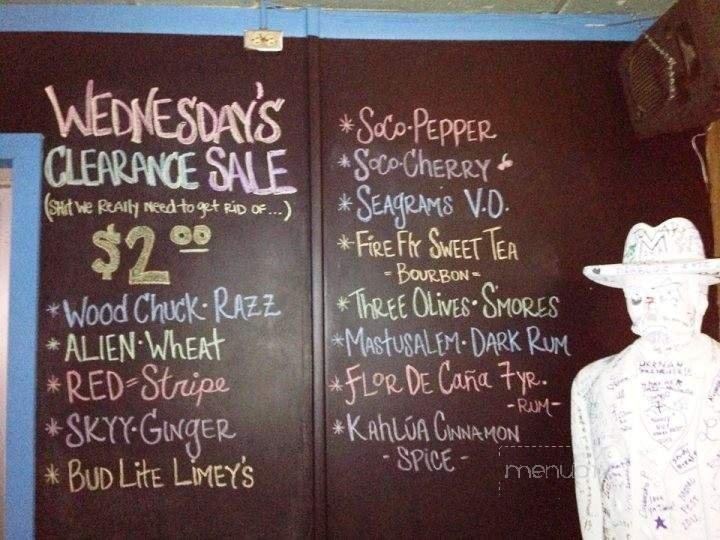 WEDNESDAY'S
CLEARANCE SALE
(SHIT WE REALLY NEED to get RID OF...)
$2.00
* WOOD CHUCK · RAZZ
* ALIEN · WHEAT
* RED = STRIPE
* SKYY · GINGER
* BUD LITE LIMEY'S
* SOCO · PEPPER
* SOCO · CHERRY
* SEAGRAMS V.O.
* FIREFLY SWEET TEA
- BOURBON -
* THREE OLIVES · S'MORES
* MASTUSALEM · DARK RUM
* FLOR DE CAÑA 7yr.
- RUM -
* KAHLÚA CINNAMON
- SPICE -
M